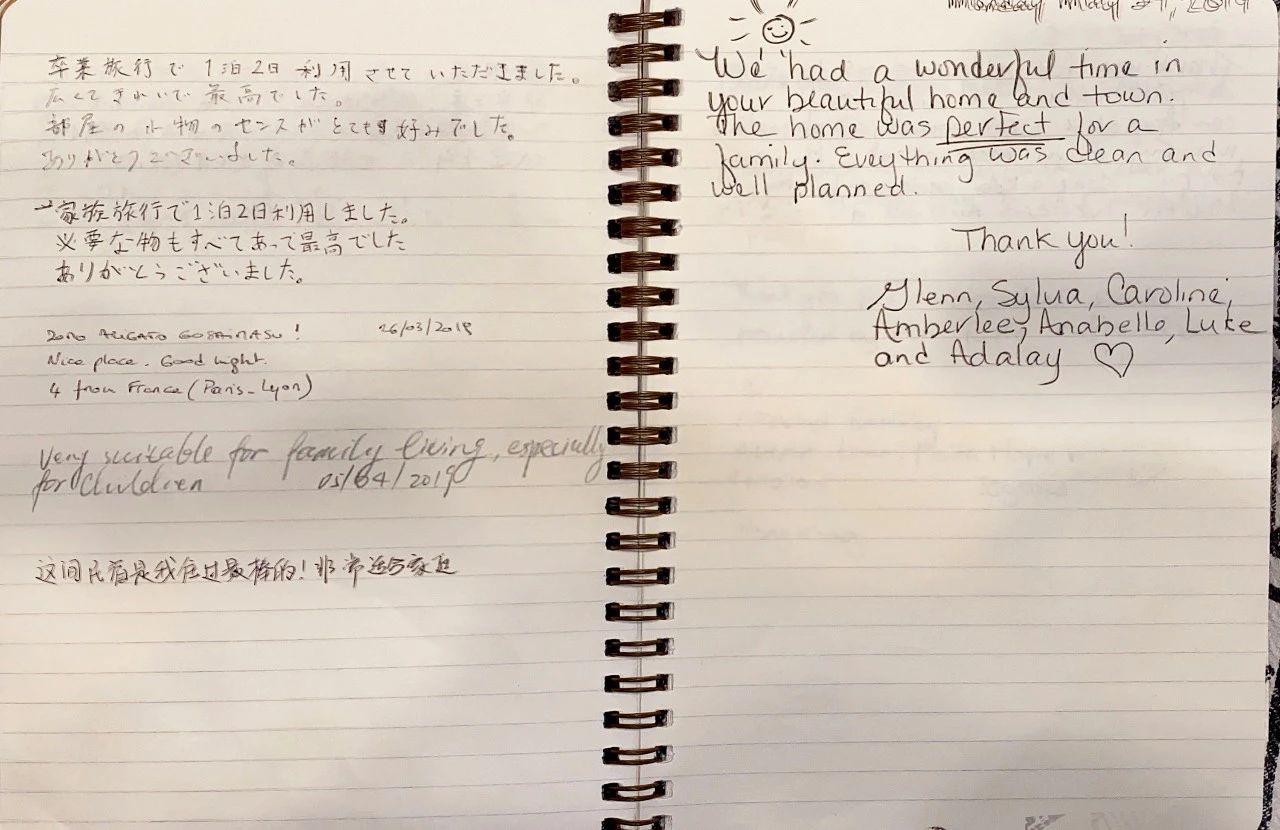 卒業旅行で1泊2日利用させていただきました。
広くてきれいで最高でした。
部屋の小物のセンスがとても好みでした。
ありがとうございました。
→家族旅行で1泊2日利用しました。
必要な物もすべてあって最高でした
ありがとうございました。
DOMO ALIGATO GOSAIMASU! 26/03/2019
Nice place. Good night.
4 from France (Paris-Lyon)
Very suitable for family living, especially
for children 05/04/2019
这间民宿是我住过最棒的！非常适合家庭
2019
We had a wonderful time in
your beautiful home and town.
The home was perfect for a
family. Eveything was clean and
well planned.
Thank you!
Glenn, Sylvia, Caroline,
Amberlee, Anabello, Luke
and Adalay ♡